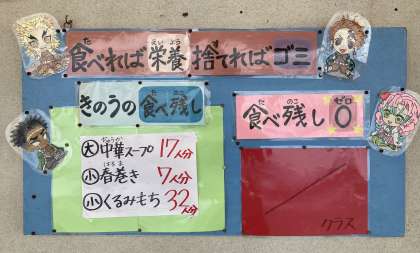 食べれば栄養捨てればゴミ
きのうの食べ残し
大中華スープ 17人分
小春巻き 7人分
小くるみもち 32人分
食べ残し0
クラス